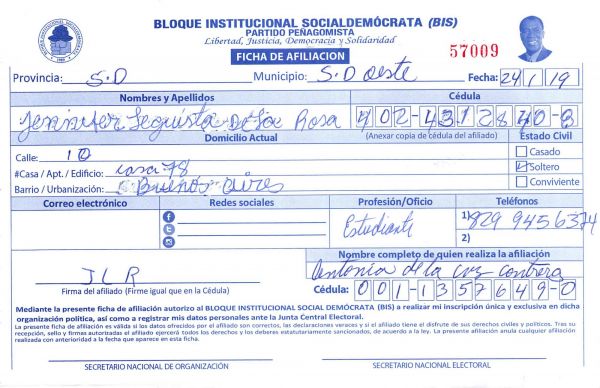 BLOQUE INSTITUCIONAL SOCIALDEMÓCRATA (BIS)
PARTIDO PEÑAGOMISTA
Libertad, Justicia, Democracia y Solidaridad
FICHA DE AFILIACION
57009
Provincia: S.D Municipio: S.D oeste Fecha: 24/1/19
Nombres y Apellidos Cédula
Jennifer Leguista De La Rosa 402-4312840-8
Domicilio Actual (Anexar copia de cédula del afiliado) Estado Civil
Calle: 10 Casado
#Casa / Apt. / Edificio: casa 78 Soltero
Barrio / Urbanización: Buenos aires Conviviente
Correo electrónico Redes sociales Profesión/Oficio Teléfonos
Estudiante 1) 829 9456374
2)
Nombre completo de quien realiza la afiliación
JLR Antonia de la cruz contrera
Firma del afiliado (Firme igual que en la Cédula) Cédula: 001-1357649-0
Mediante la presente ficha de afiliación autorizo al BLOQUE INSTITUCIONAL SOCIAL DEMÓCRATA (BIS) a realizar mi inscripción única y exclusiva en dicha
organización política, así como a registrar mis datos personales ante la Junta Central Electoral.
La presente ficha de afiliación es válida si los datos ofrecidos por el afiliado son correctos, las declaraciones veraces y si el afiliado tiene el disfrute de sus derechos civiles y políticos. Tras su
recepción, sello y firmas autorizadas el afiliado ejercerá todos los derechos y los deberes estatutariamente sancionados, de acuerdo a la ley. La presente afiliación anula cualquier afiliación
realizada con anterioridad a la fecha que aparece en esta ficha.
SECRETARIO NACIONAL DE ORGANIZACIÓN SECRETARIO NACIONAL ELECTORAL